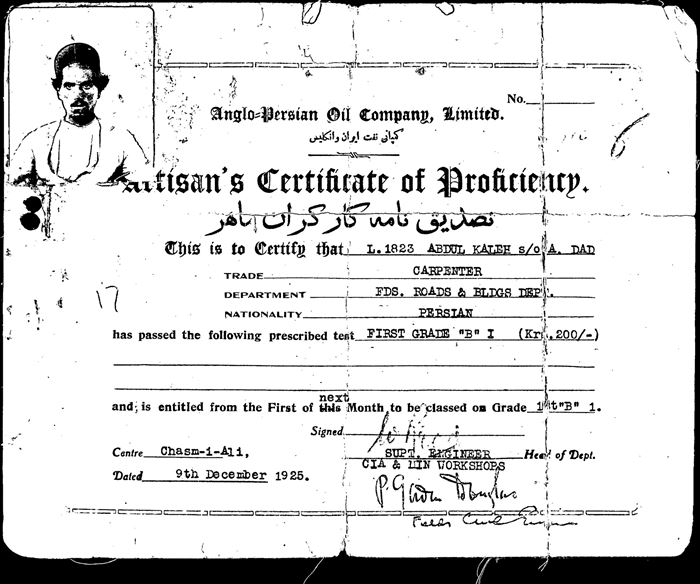 No.
Anglo-Persian Oil Company, Limited.
کمپانی نفت ایران و انگلیس
6
Artisan's Certificate of Proficiency.
تصدیق نامه کارگران ماهر
This is to Certify that L.1823 ABDUL KALEH s/o A. DAD
TRADE CARPENTER
DEPARTMENT FDS. ROADS & BLDGS DEPT.
17
NATIONALITY PERSIAN
has passed the following prescribed test FIRST GRADE "B" I (Kr .200/-)
next
and, is entitled from the First of this Month to be classed on Grade 1st"B" 1.
Signed
Centre Chasm-i-Ali, SUPT. ENGINEER Head of Dept.
CIA & LIN WORKSHOPS
Dated 9th December 1925.
P. Gordon Douglas
Fields Civil Engineer